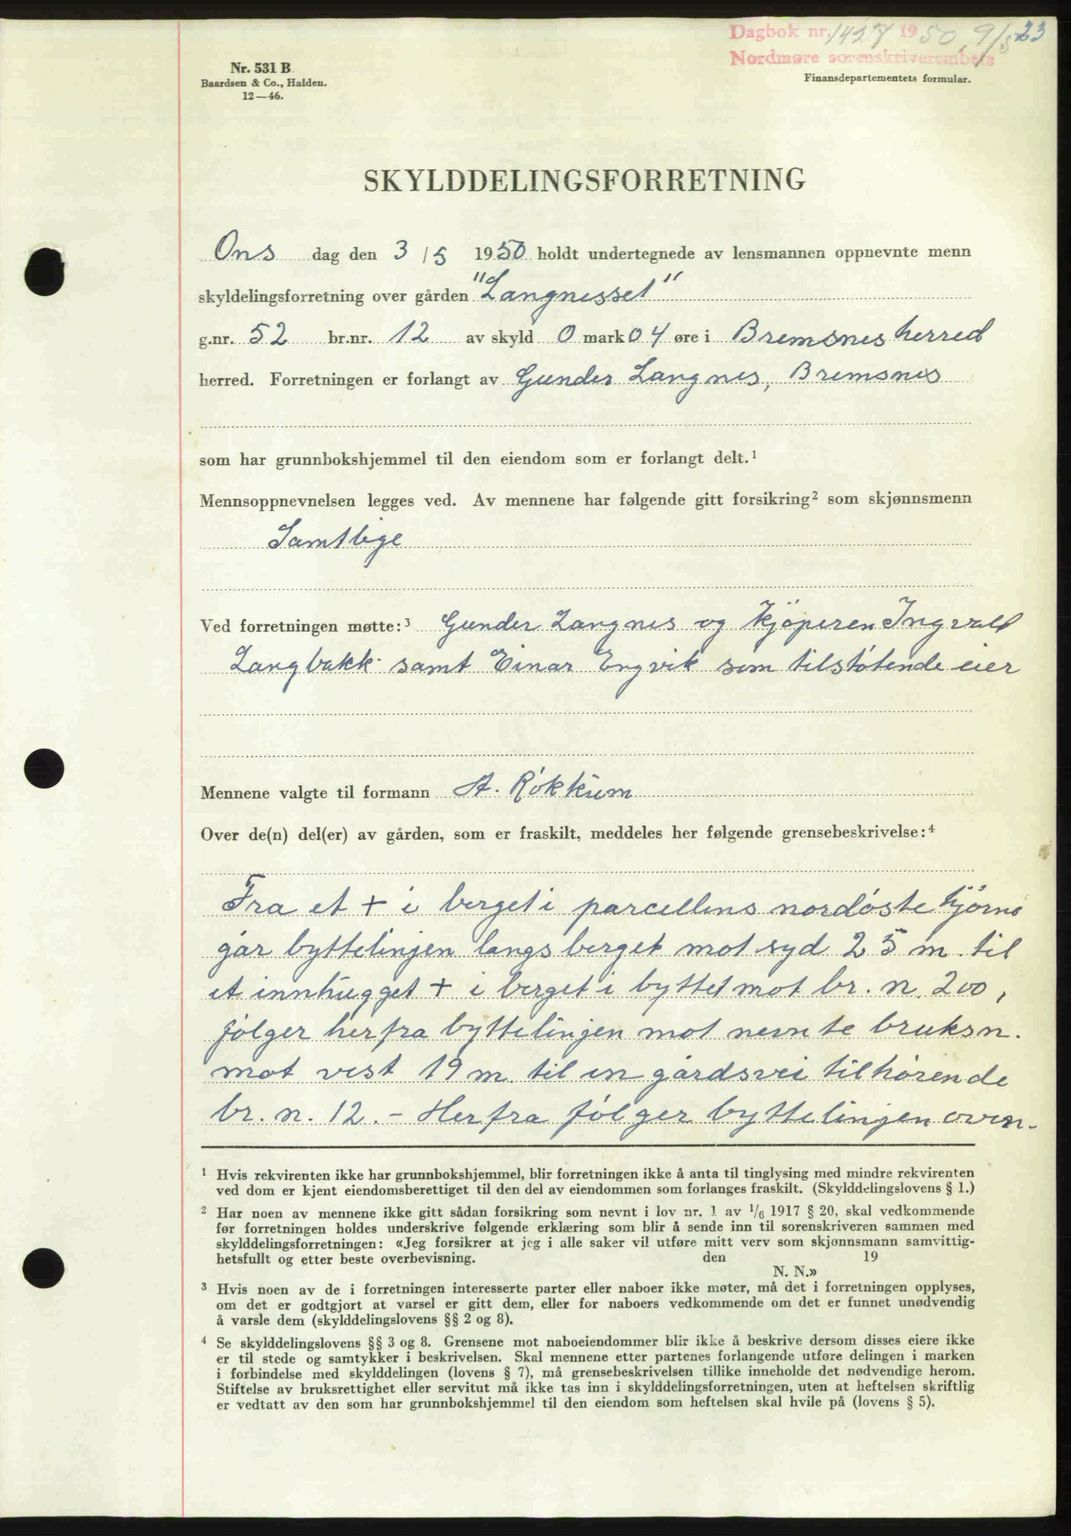 Dagbok nr. 1427 1950, 9/5 23
Nordmøre sorenskriverembete
Nr. 531 B
Baardsen & Co., Halden.
12—46.
Finansdepartementets formular.
SKYLDDELINGSFORRETNING
Ons dag den 3/5 1950 holdt undertegnede av lensmannen oppnevnte menn
skyldelingsforretning over gården "Langnesset"
g.nr. 52 br.nr. 12 av skyld 0 mark 04 øre i Bremsnes herred
herred. Forretningen er forlangt av Gunder Langnes, Bremsnes
som har grunnbokshjemmel til den eiendom som er forlangt delt.¹
Mennsoppnevnelsen legges ved. Av mennene har følgende gitt forsikring² som skjønnsmenn
Samtlige
Ved forretningen møtte:³ Gunder Langnes og kjöperen Ingvald
Langbakk samt Einar Engvik som tilstøtende eier
Mennene valgte til formann A. Røkkum
Over de(n) del(er) av gården, som er fraskilt, meddeles her følgende grensebeskrivelse:⁴
Fra et + i berget i parcellens nordøste hjørne
går byttelinjen langs berget mot syd 25 m. til
et innhugget + i berget i byttet mot br. n. 200,
følger herfra byttelinjen mot nevnte bruksn.
mot vest 19 m. til en gårdsvei tilhørende
br. n. 12. - Herfra følger byttelinjen oven-
¹ Hvis rekvirenten ikke har grunnbokshjemmel, blir forretningen ikke å anta til tinglysing med mindre rekvirenten
ved dom er kjent eiendomsberettiget til den del av eiendommen som forlanges fraskilt. (Skylddelingslovens § 1.)
² Har noen av mennene ikke gitt sådan forsikring som nevnt i lov nr. 1 av 1/6 1917 § 20, skal vedkommende
før forretningen holdes underskrive følgende erklæring som blir å sende inn til sorenskriveren sammen med
skylddelingsforretningen: «Jeg forsikrer at jeg i alle saker vil utføre mitt verv som skjønnsmann samvittig-
hetsfullt og etter beste overbevisning. den 19
N. N.»
³ Hvis noen av de i forretningen interesserte parter eller naboer ikke møter, må det i forretningen opplyses,
om det er godtgjort at varsel er gitt dem, eller for naboers vedkommende om det er funnet unødvendig
å varsle dem (skylddelingslovens §§ 2 og 8).
⁴ Se skylddelingslovens §§ 3 og 8. Grensene mot naboeiendommer blir ikke å beskrive dersom disses eiere ikke
er til stede og samtykker i beskrivelsen. Skal mennene etter partenes forlangende utføre delingen i marken
i forbindelse med skylddelingen (lovens § 7), må grensebeskrivelsen tillike inneholde det nødvendige herom.
Stiftelse av bruksrettighet eller servitut må ikke tas inn i skylddelingsforretningen, uten at heftelsen skriftlig
er vedtatt av den som har grunnbokshjemmel til den eiendom som heftelsen skal hvile på (lovens § 5).